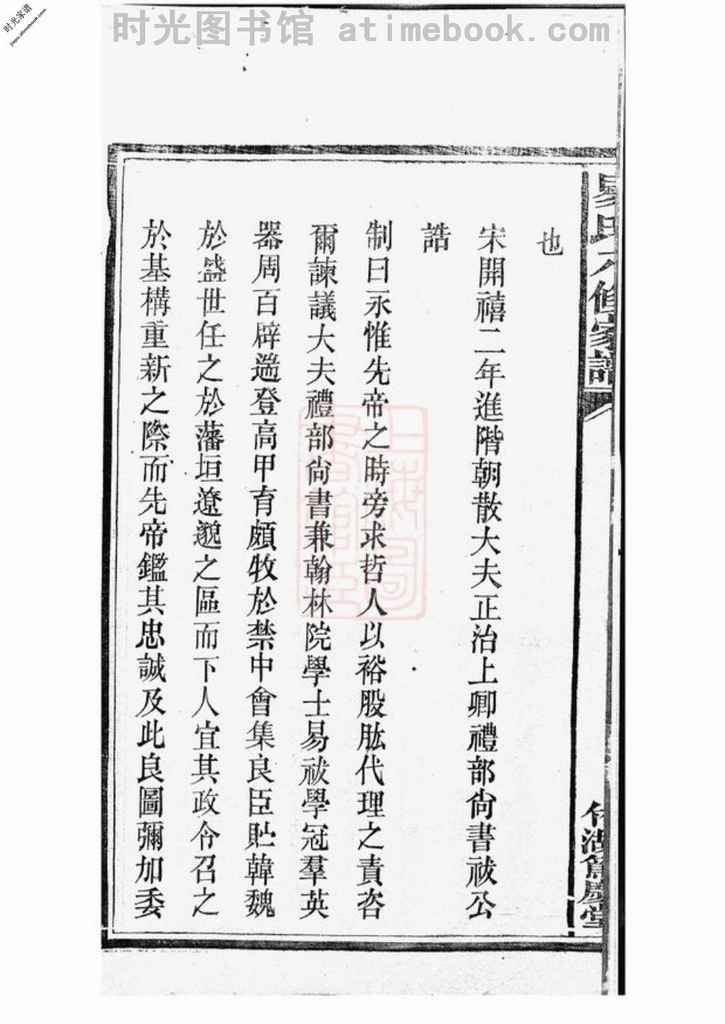 时光图书馆 atimebook.com
时光家谱
易氏六修家譜
也
宋開禧二年進階朝散大夫正治上卿禮部尙書祓公
誥
制曰永惟先帝之時旁求哲人以裕股肱代理之責咨
爾諫議大夫禮部尙書兼翰林院學士易祓學冠羣英
器周百辟遄登高甲育頗牧於禁中會集良臣貯韓魏
於盛世任之於藩垣遼邈之區而下人宜其政令召之
於基構重新之際而先帝鑑其忠誠及此良圖彌加委